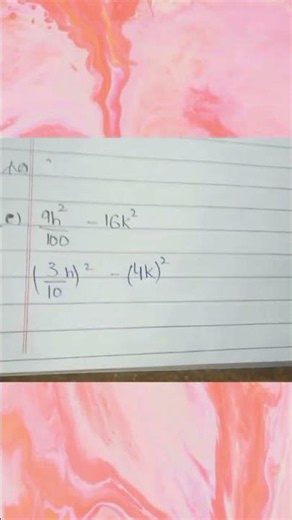 e) 9h²/100 - 16k²
(3/10 h)² - (4k)²